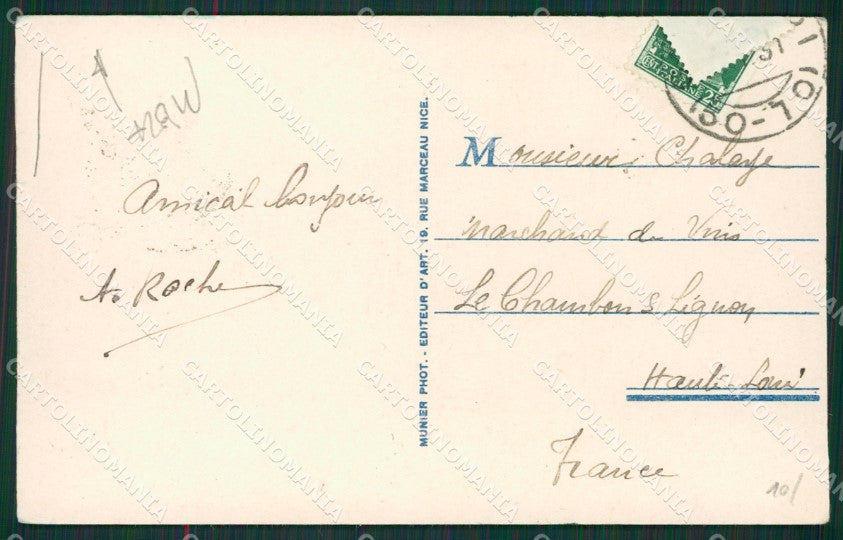 Amical bonjour
A. Roche
MUNIER PHOT. - EDITEUR D'ART. 19, RUE MARCEAU NICE.
Monsieur Chalaye
Marchand de Vins
Le Chambon s Lignon
Haute-Loire
France
10/
25
31
CARTOLINOMANIA